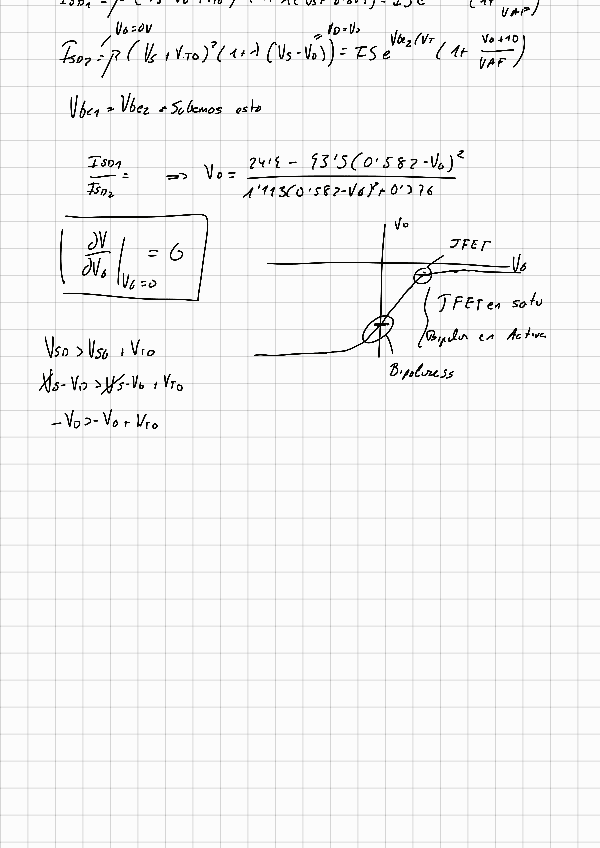 VAF)
VG=0V
VD=Vo
ISD2 = β (VS + VTO)² (1+λ (VS-VO)) = IS e^Vbe2/VT (1+ (VO+10)/VAF)
Vbe1 = Vbe2 → Sabemos esto
ISD1/ISD2 = ⇒ VO = (24'5 - 93'5(0'582-VG)²)/(1'113(0'582-VG)²+0'276)
∂V/∂VG |VG=0 = 6
Vo
JFET
VG
JFET en satu
Bipolar en Activa
Bipolares
VSD > VSG + VTO
VS-VD > VS-VG + VTO
-VD > -VG + VTO